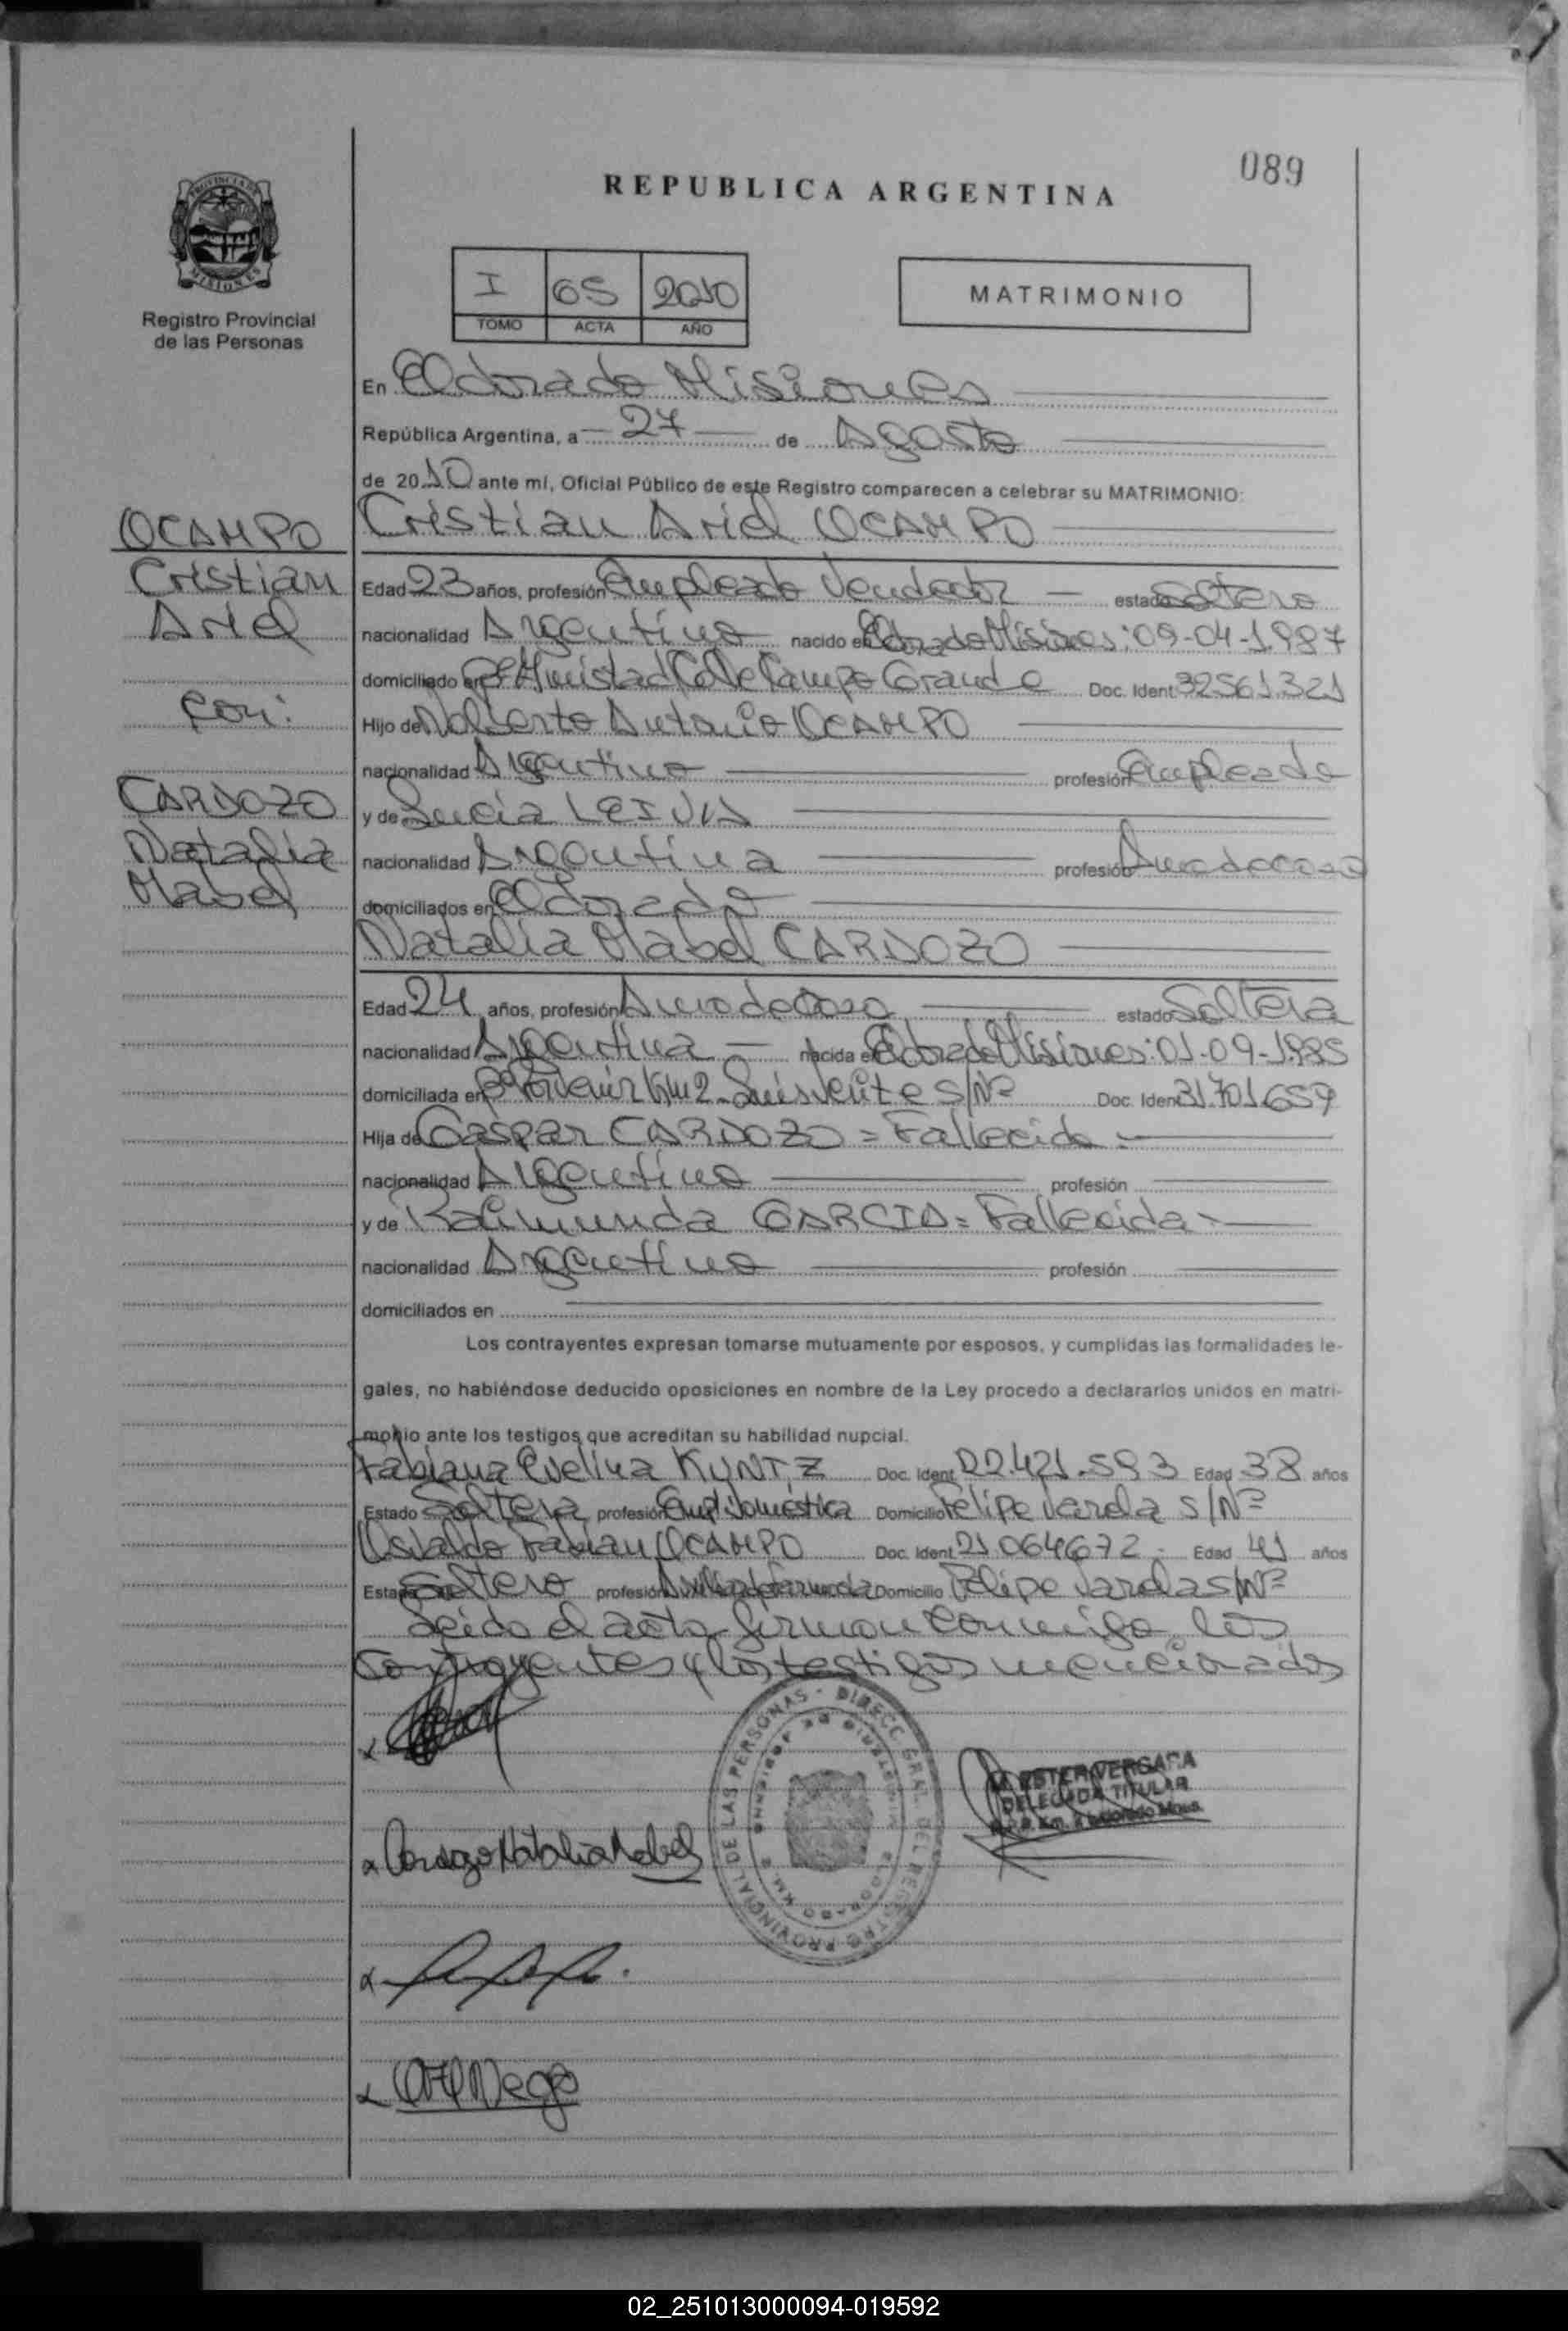 089
REPUBLICA ARGENTINA
PROVINCIA DE MISIONES
Registro Provincial
de las Personas
I 65 2010
TOMO ACTA AÑO
MATRIMONIO
En Eldorado Misiones
República Argentina, a 27 de Agosto
de 2010 ante mí, Oficial Público de este Registro comparecen a celebrar su MATRIMONIO:
OCAMPO
Cristian
Ariel
con:
CARDOZO
Natalia
Mabel
Cristian Ariel OCAMPO
Edad 23 años, profesión Empleado Vendedor estado Soltero
nacionalidad Argentino nacido en Eldorado Misiones: 09-04-1.987
domiciliado en Bº Amistad Calle Campo Grande Doc. Ident. 32561.321
Hijo de Norberto Antonio OCAMPO
nacionalidad Argentino profesión Empleado
y de Lucia LEIVA
nacionalidad Argentina profesión Ama de casa
domiciliados en Eldorado
Natalia Mabel CARDOZO
Edad 24 años, profesión Ama de Casa estado Soltera
nacionalidad Argentina nacida en Eldorado Misiones: 01-09-1.985
domiciliada en Bº Porvenir Km 2 S/Nº Doc. Ident. 31.701.659
Hija de Gaspar CARDOZO = Fallecido
nacionalidad Argentino profesión
y de Raimunda GARCIA = Fallecida
nacionalidad Argentina profesión
domiciliados en
Los contrayentes expresan tomarse mutuamente por esposos, y cumplidas las formalidades le-
gales, no habiéndose deducido oposiciones en nombre de la Ley procedo a declararlos unidos en matri-
monio ante los testigos que acreditan su habilidad nupcial.
Fabiana Evelina KUNTZ Doc. Ident. 22.421.593 Edad 38 años
Estado Soltera profesión Empl. Doméstica Domicilio Felipe Varela S/Nº
Osvaldo Fabian OCAMPO Doc. Ident. 21.064672 Edad 41 años
Estado Soltero profesión Auxiliar de farmacia Domicilio Felipe Varela S/Nº
Leida el acta firman conmigo los
contrayentes y los testigos mencionados
M. ESTER VERGARA
DELEGADA TITULAR
Cardozo Natalia Mabel
02_251013000094-019592